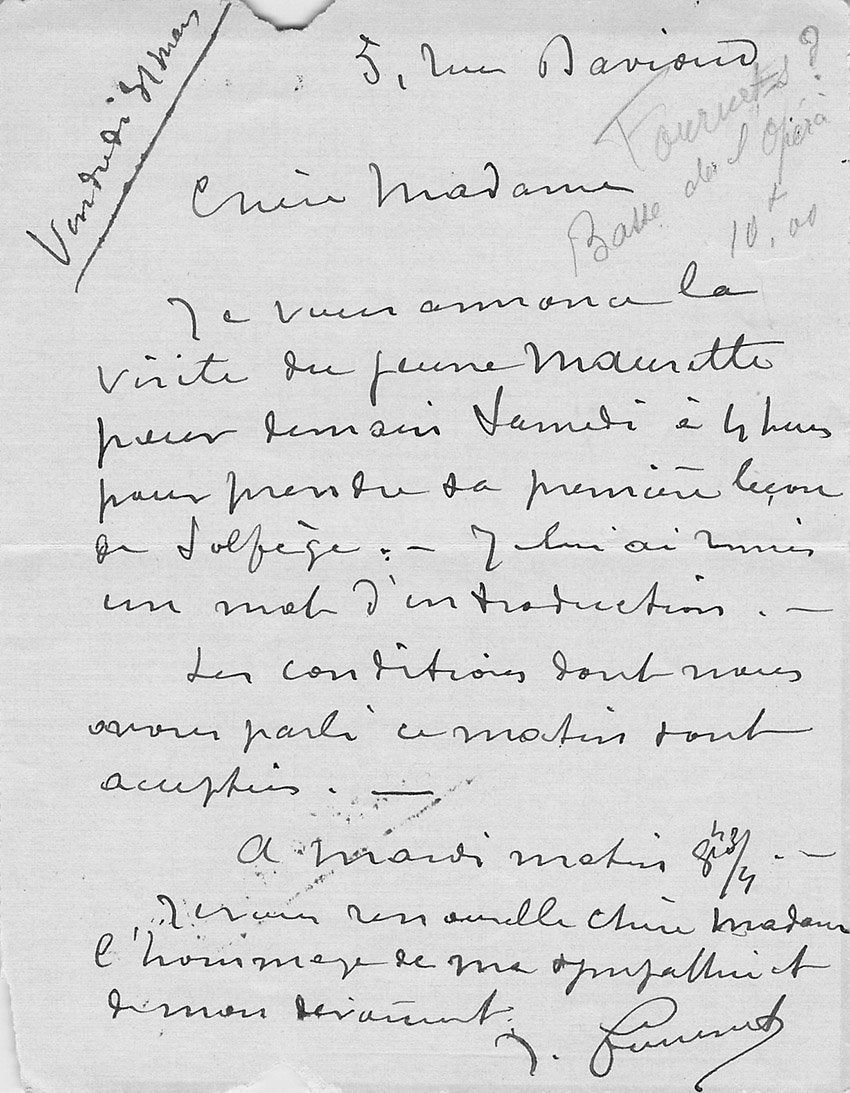 Vendredi 31 mars
5, rue Davioud
Fournets ?
Basse de l'Opéra
10f,00
Chère Madame
Je vous annonce la
visite du jeune Maurette
pour demain Samedi à 4 heures
pour prendre sa première leçon
de Solfège. – Je lui ai remis
un mot d'introduction. –
Les conditions dont nous
avons parlé ce matin sont
acceptées. —
A mardi matin 8h 3/4. –
Je vous renouvelle chère Madame
l'hommage de ma sympathie et
de mon dévouement.
J. Fournets